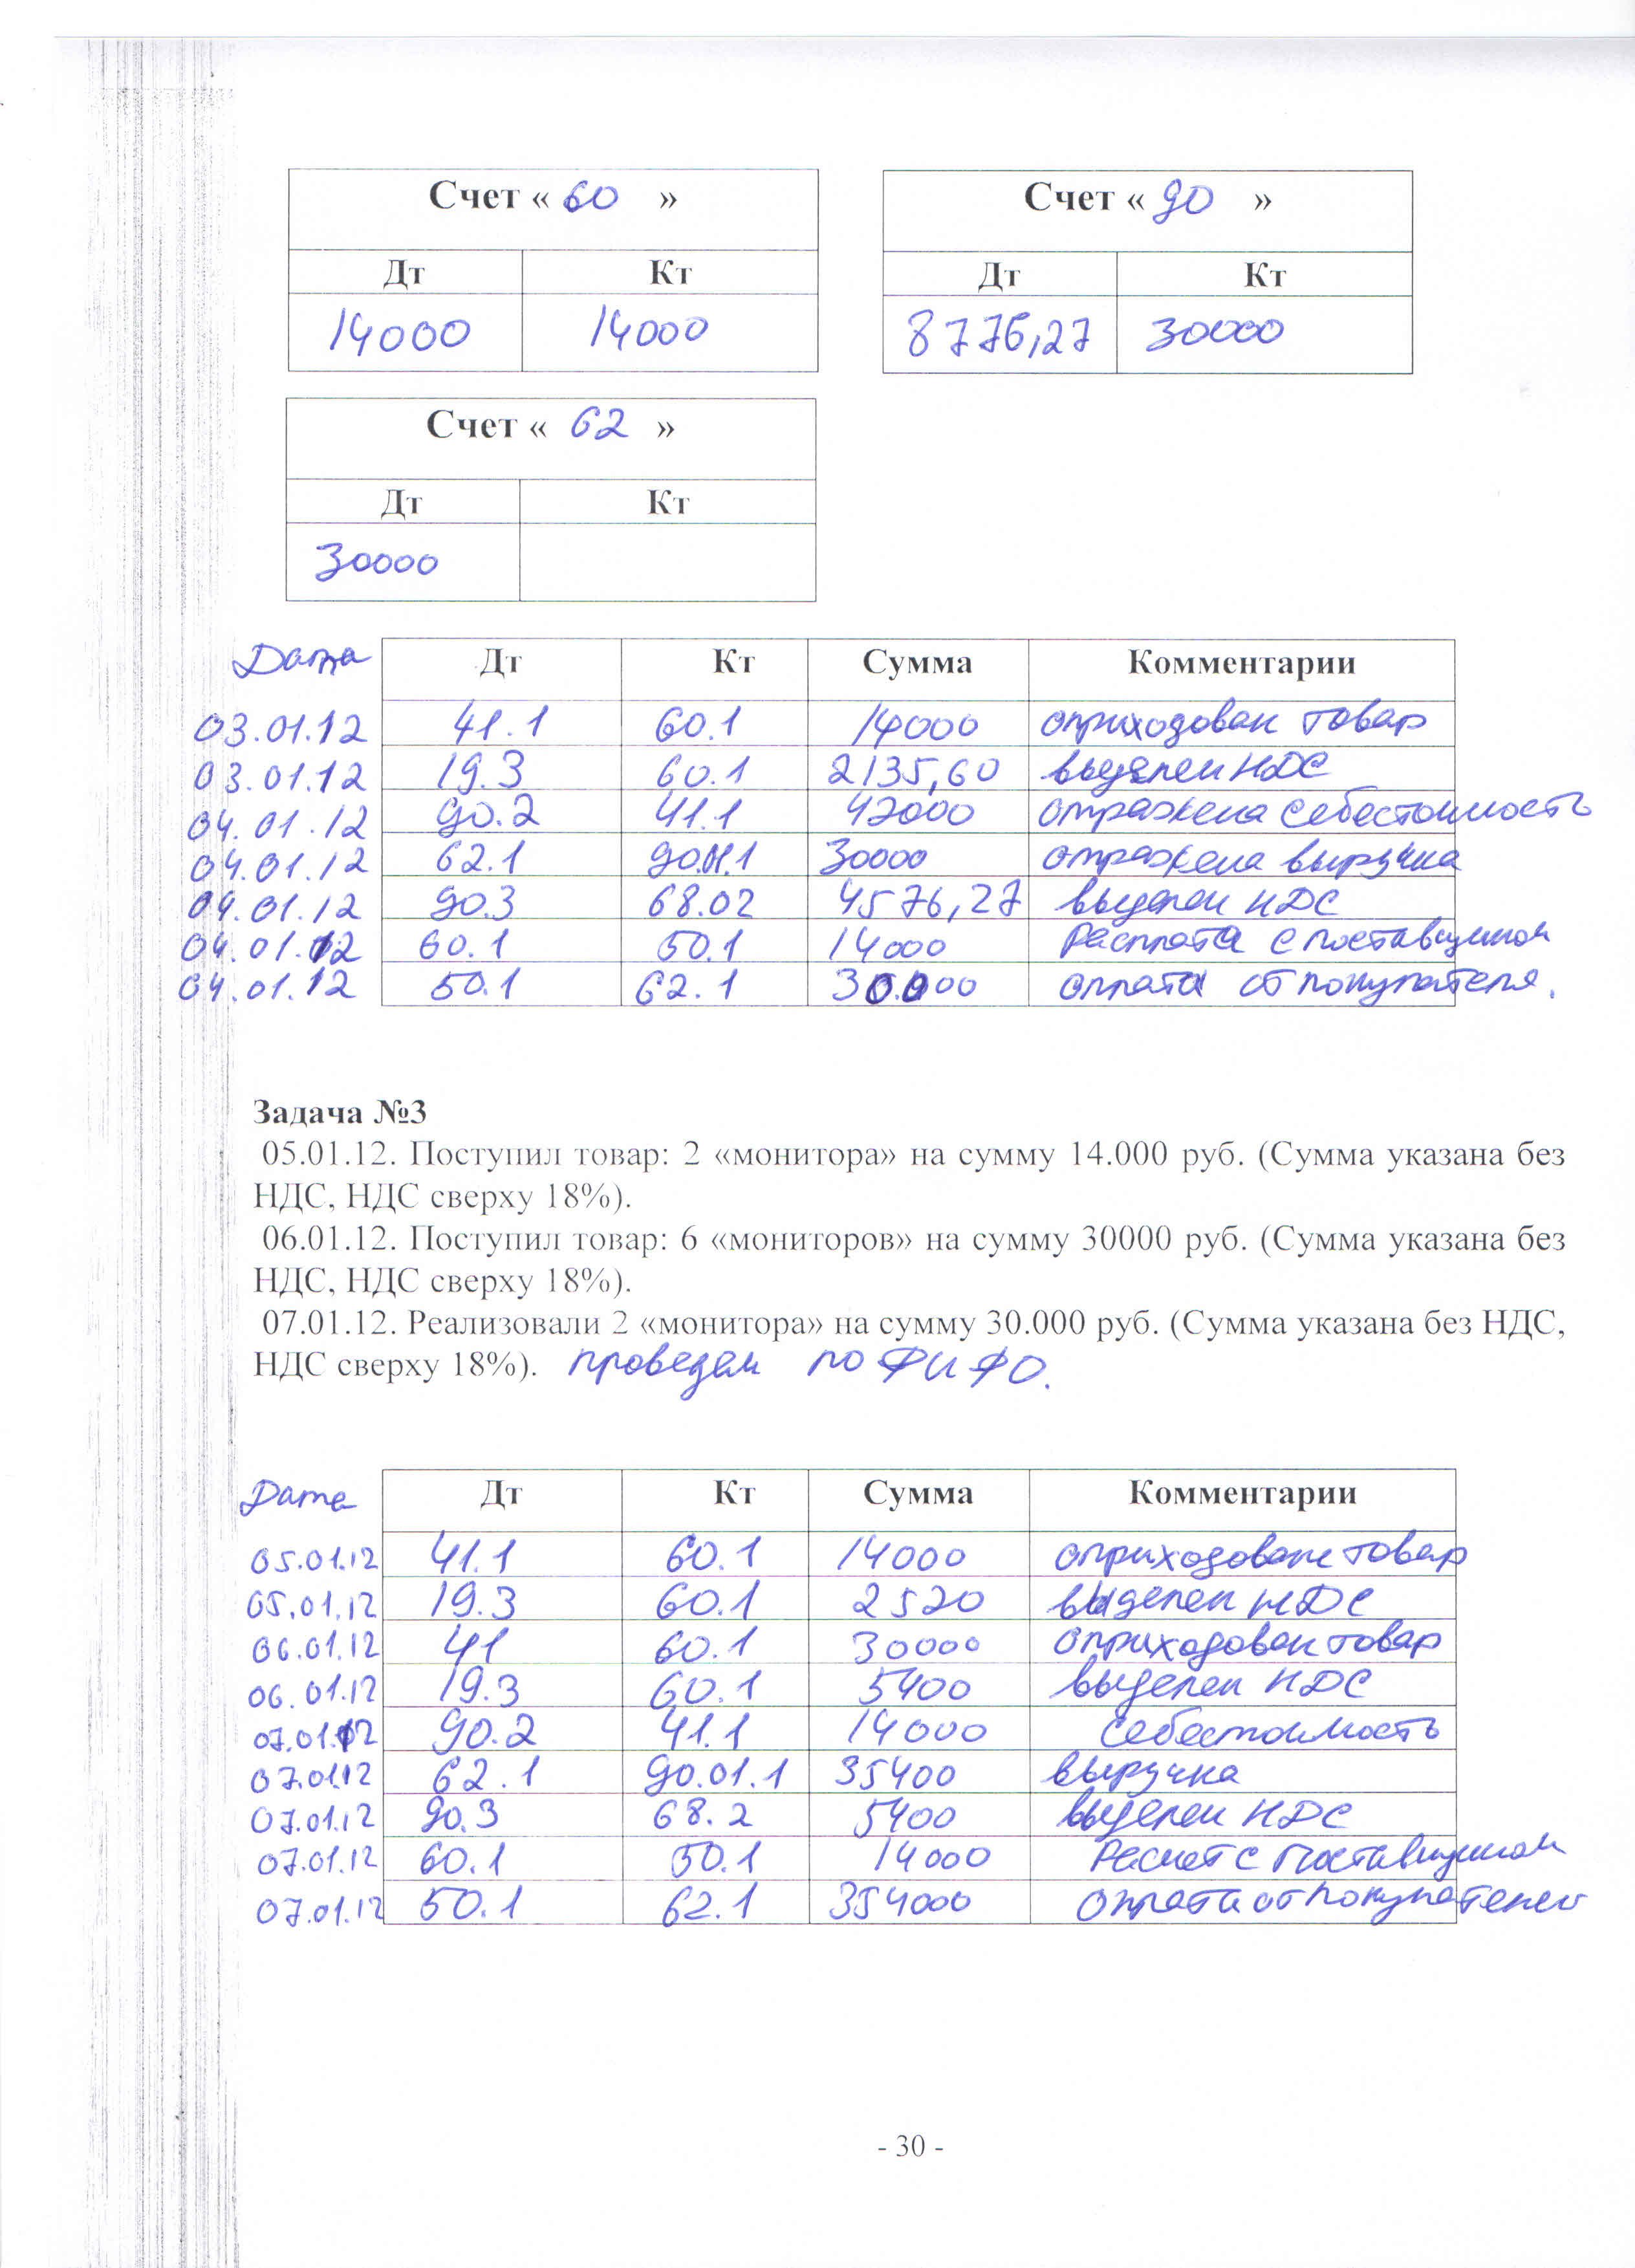 Счет « 60 » Счет « 90 »
Дт Кт Дт Кт
14000 14000 8776,27 30000
Счет « 62 »
Дт Кт
30000
Дата Дт Кт Сумма Комментарии
03.01.12 41.1 60.1 14000 оприходован товар
03.01.12 19.3 60.1 2135,60 выделен НДС
04.01.12 90.2 41.1 42000 отражена себестоимость
04.01.12 62.1 90.01.1 30000 отражена выручка
04.01.12 90.3 68.02 4576,27 выделен НДС
04.01.12 60.1 50.1 14000 Расплата с поставщиком
04.01.12 50.1 62.1 30.000 оплата от покупателя.
Задача №3
05.01.12. Поступил товар: 2 «монитора» на сумму 14.000 руб. (Сумма указана без
НДС, НДС сверху 18%).
06.01.12. Поступил товар: 6 «мониторов» на сумму 30000 руб. (Сумма указана без
НДС, НДС сверху 18%).
07.01.12. Реализовали 2 «монитора» на сумму 30.000 руб. (Сумма указана без НДС,
НДС сверху 18%). проведем по ФИФО.
Дата Дт Кт Сумма Комментарии
05.01.12 41.1 60.1 14000 оприходован товар
05.01.12 19.3 60.1 2520 выделен НДС
06.01.12 41 60.1 30000 оприходован товар
06.01.12 19.3 60.1 5400 выделен НДС
07.01.12 90.2 41.1 14000 себестоимость
07.01.12 62.1 90.01.1 35400 выручка
07.01.12 90.3 68.2 5400 выделен НДС
07.01.12 60.1 50.1 14000 Расчет с поставщиком
07.01.12 50.1 62.1 354000 оплата от покупателей
- 30 -